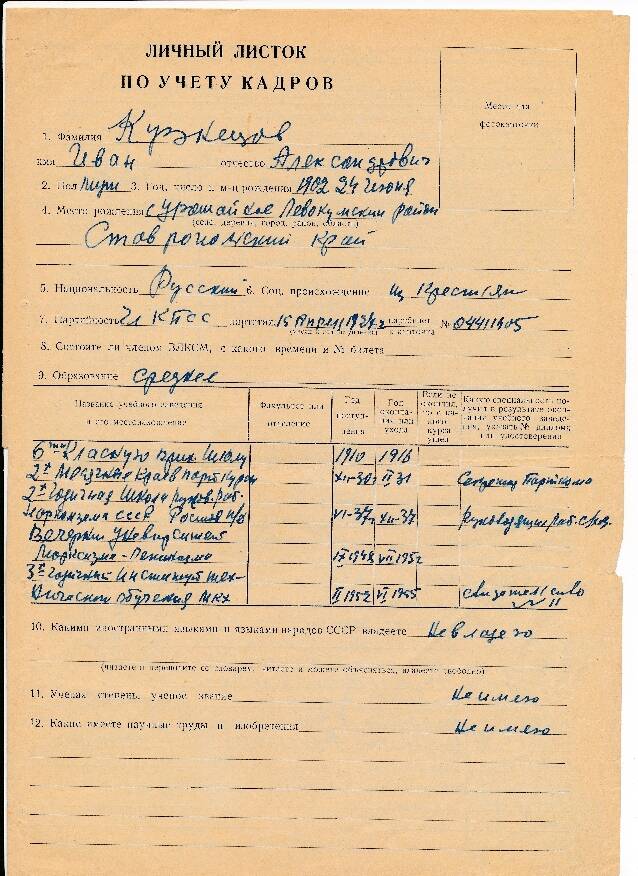 ЛИЧНЫЙ ЛИСТОК
ПО УЧЕТУ КАДРОВ
Место для
фотокарточки
1. Фамилия Кузнецов
имя Иван отчество Александрович
2. Пол муж 3. Год, число и м-ц рождения 1902 24 Июня
4. Место рождения с Левокумский район
(село, деревня, город, район, область)
Ставропольский край
5. Национальность Русский 6. Соц. происхождение из Крестьян
7. Партийность Чл КПСС партстаж 15 партбилет № 04411905
8. Состоите ли членом ВЛКСМ, с какого времени и № билета
9. Образование среднее
Название учебного заведения и его местонахождение
Факультет или отделение
Год поступления
Год окончания или ухода
Если не окончил, то с какого курса ушел
Какую специальность получил в результате окончания учебного заведения, указать № диплома или удостоверения
6 Школу 1910 1916
2х Краев парт Курсы XII-30 II 31 Секретарь Парткома
2х годичная Школа Руков. Раб.
Наркомзема СССР VI-37 XII-37 Руководящие Раб.
Вечерний Университет
Марксизма-Ленинизма IX 1948 VII 1952
3х годичный Институт тех-
нического обучения МКХ II 1952 VI 1955 свидетельство
10. Какими иностранными языками и языками народов СССР владеете Не владею
(читаете и переводите со словарем, читаете и можете объясняться, владеете свободно)
11. Ученая степень, ученое звание Не имею
12. Какие имеете научные труды и изобретения Не имею